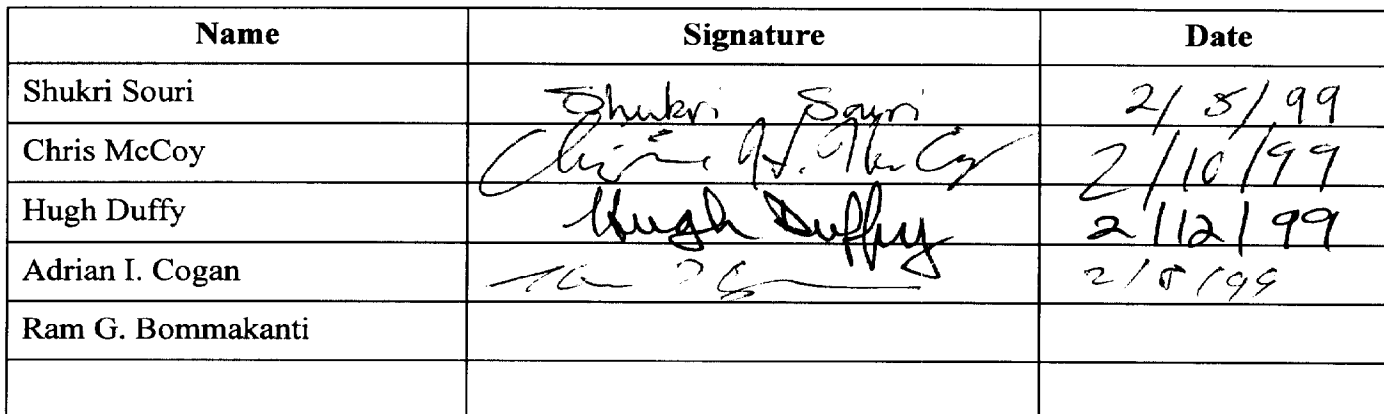 Name Signature Date
Shukri Souri Shukri Souri 2/8/99
Chris McCoy H. McCoy 2/10/99
Hugh Duffy Hugh Duffy 2/12/99
Adrian I. Cogan 2/8/99
Ram G. Bommakanti